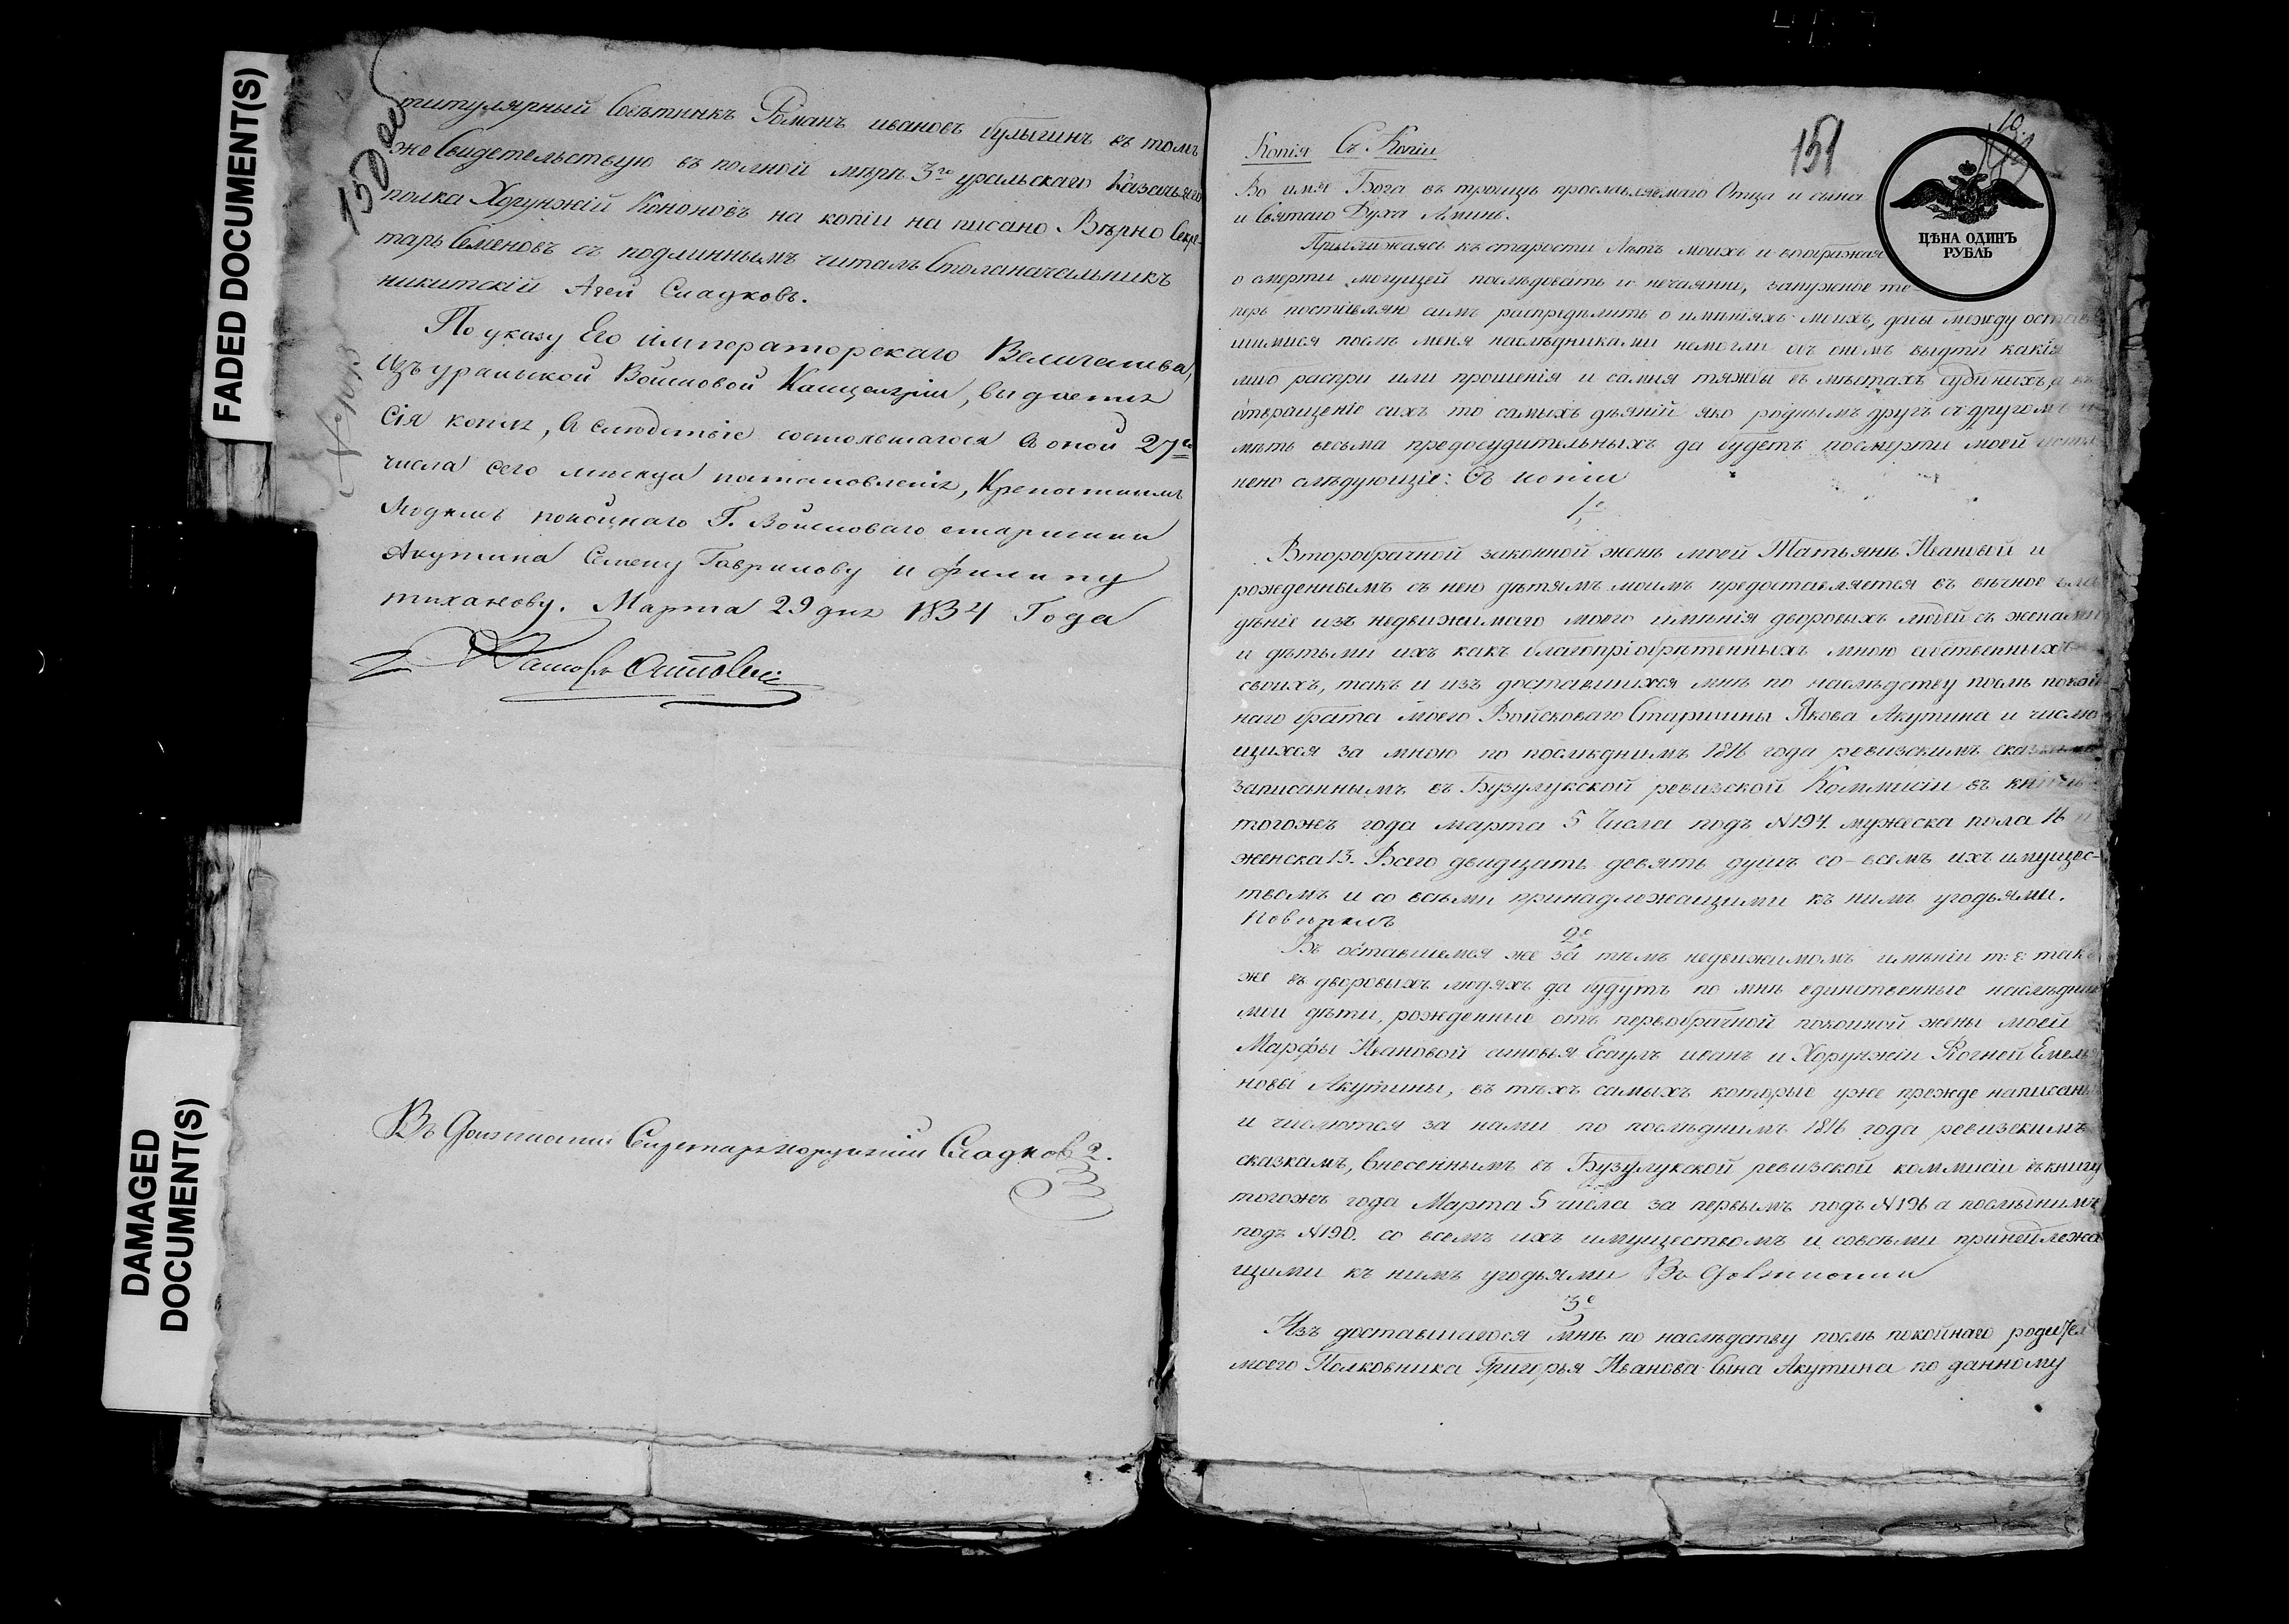 FADED DOCUMENT(S)
DAMAGED
DOCUMENT(S)
150 об
титулярный Совѣтникъ Романъ ивановъ булыгинъ въ томъ
же Свидетельствую въ полной мѣрѣ 3го уральскаго Казачьяго
полка Хорунжій Кононовъ на копіи на писано Вѣрно Секре-
тарь Семеновъ съ подлиннымъ читалъ Столаначальникъ
никитскій Агей Сладковъ.
По указу Его императорскаго Величества,
Изъ уральской Войсковой Канцеляріи, выдается
сія копия, в следствіе состоявшагося в оной 27го
числа сего месяца постановления, Крепостнымъ
Людямъ покойнаго Г. Войсковаго старшины
Акутина Семену Гаврилову и филипу
тиханову. Марта 29 дня 1834 Года
Въ Должности Секретаря хорунжій Сладковъ.
151
10.
ЦѢНА ОДИНЪ
РУБЛЬ
Копія Съ Копіи
Во имя Бога въ троицѣ прославляемаго Отца и сына
и Святаго Духа Аминь.
Приближаясь къ старости Лѣтъ моихъ и воображая
о смерти могущей последовать и нечаянно, занужное те-
перь поставляю симъ распредѣлить о имѣніяхъ моихъ, дабы между остав
шимися послѣ меня наслѣдниками немогли объ ономъ выдти какія
либо распри или прошенія и самыя тяжбы въ мѣстахъ судебныхъ, а въ
отвращеніе сихъ то самыхъ дѣяній яко роднымъ другъ съ другомъ и
мѣть весьма предосудительныхъ да будетъ посмерти моей
нено слѣдующіе: Съ копіи
1е
Второбрачной законной женѣ моей Татьянѣ Ивановой и
рожденнымъ съ нею дѣтямъ моимъ предоставляется въ вѣчное вла
дѣніе изъ недвижимаго моего имѣнія дворовыхъ людей съ женами
и дѣтьми ихъ какъ благопріобритенныхъ мною собственныхъ
своихъ, такъ и изъ доставшихся мнѣ по наслѣдству послѣ покой
наго брата моего Войсковаго Старшины Якова Акутина и числю
щихся за мною по послѣднимъ 1816 года ревизскимъ сказкамъ
записаннымъ въ Бузулукской ревизской Коммисіи въ книгѣ
тогожъ года марта 5 Числа подъ №194. мужеска пола 16 и
женска 13. Всего двадцать девять душъ со-всемъ ихъ имущес-
твомъ и со всѣми принадлежащими къ нимъ угодьями.
Поверялъ
2е
Въ оставшемся же за тѣмъ недвижимомъ имѣніи т: е: так
же въ дворовыхъ людяхъ да будутъ по мнѣ единственные наслѣдни
мои дѣти, рожденные отъ первобрачной покойной жены моей
Марфы Ивановой сыновья Есаулъ иванъ и Хорунжій Емелья
новы Акутины, въ тѣхъ самыхъ которые уже прежде написаны
и числются за нами по послѣднимъ 1816 года ревизскимъ
сказкамъ, внесеннымъ въ Бузулукской ревизской коммисіи въ книгу
тогожъ года Марта 5 числа за первымъ подъ №196 а послѣднимъ
подъ №190. со всемъ ихъ имуществомъ и совсѣми принадлежа
щими къ нимъ угодьями Въ Должности
3е
Изъ доставшагося мнѣ по наслѣдству послѣ покойнаго родител
моего Полковника Григорья Иванова Сына Акутина по данному